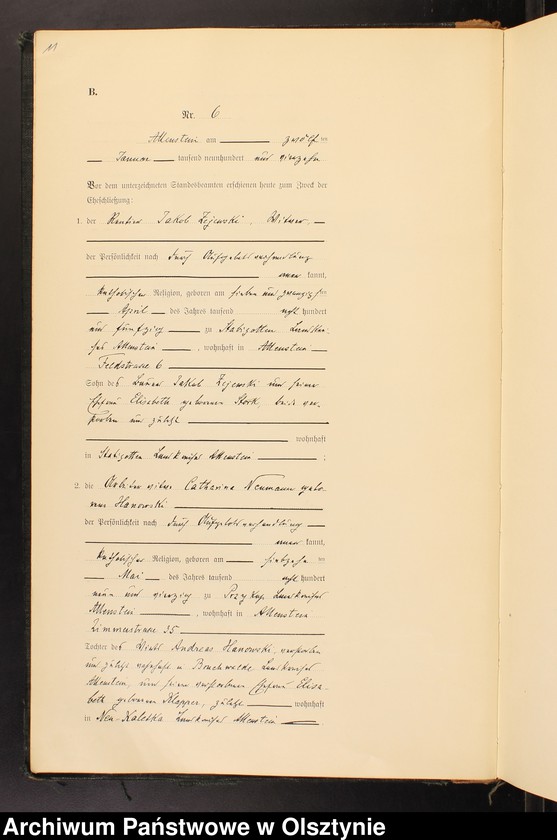 11
B.
Nr. 6
Allenstein am zwölf ten
Januar tausend neunhundert und vierzehn
Vor dem unterzeichneten Standesbeamten erschienen heute zum Zweck der
Eheschließung:
1. der Rentier Jakob Zejewski, Witwer,
der Persönlichkeit nach durch Aufgebotsverhandlung
anerkannt,
katholischer Religion, geboren am sieben und zwanzigsten
April des Jahres tausend acht hundert
und fünfzig zu Stabigotten Landkrei-
ses Allenstein, wohnhaft in Allenstein
Feldstrasse 6
Sohn des Jakob Zejewski und seiner
Ehefrau Elisabeth geborenen Stork, beide ver-
storben und zuletzt
wohnhaft
in Stabigotten Landkreises Allenstein ;
2. die Catharina Neumann gebo-
rene Hanowski
der Persönlichkeit nach durch Aufgebotsverhandlung
anerkannt,
katholischer Religion, geboren am siebzehn ten
Mai des Jahres tausend acht hundert
neun und vierzig zu Landkreises
Allenstein, wohnhaft in Allenstein
Zimmerstrasse 35
Tochter des Wirts Andreas Hanowski, verstorben
und zuletzt wohnhaft in Landkreises
Allenstein, und seiner verstorbenen Ehefrau Elisa-
beth geborenen Klapper, zuletzt wohnhaft
in Neu-Kaletka Landkreises Allenstein
Archiwum Państwowe w Olsztynie